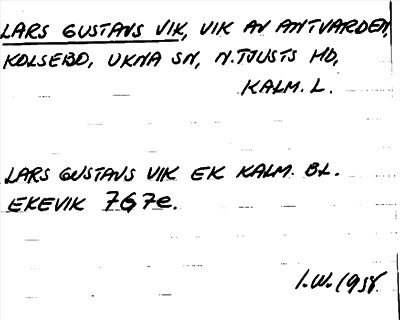 LARS GUSTAVS VIK, VIK AV ANTVARDEN,
KOLSEBO, UKNA SN, N.TJUSTS HD,
KALM. L.
LARS GUSTAVS VIK EK KALM. B.L.
EKEVIK 7G7e.
I.W. 1958.